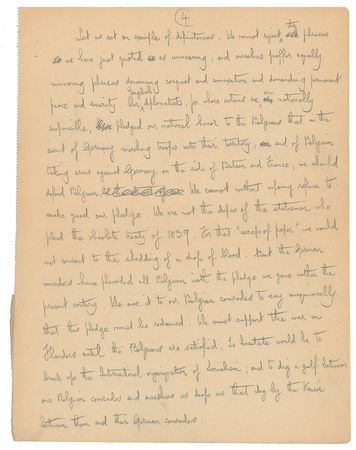 4
Let us set an example of definiteness. We cannot reject the phrases
we have just quoted as unmeaning, and ourselves proffer equally
unmeaning phrases denouncing conquest and annexation and demanding permanent
peace and security. Our English diplomatists, for whose actions we are nationally
responsible, pledged our national honor to the Belgians that in the
event of Germany sending troops into their territory, and of Belgium
taking arms against Germany on the side of Britain and France, we should
defend Belgium. We cannot without infamy refuse to
make good our pledge. We are not the dupes of the statesmen who
plead the obsolete treaty of 1839. For that "scrap of paper" we would
not consent to the shedding of a drop of blood. But the German
invaders have placarded all Belgium with the pledge we gave within the
present century. We owe it to our Belgian comrades to say unequivocally
that this pledge must be redeemed. We must support the war in
Flanders until the Belgians are satisfied. To hesitate would be to
break up the International organization of Socialism; and to dig a gulf between
our Belgian comrades and ourselves as deep as that dug by the Kaiser
between them and their German comrades.